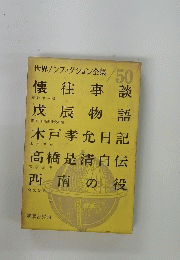 世界ノンフィクション全集/50
懐往事談
戊辰物語
木戸孝允日記
高橋是清自伝
西南の役